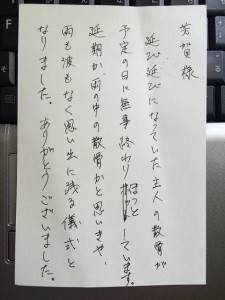 芳賀様
延び延びになっていた主人の散骨が
予定の日に無事終わりほっとしています。
延期か、雨の中の散骨かと思いきや、
雨も波もなく思い出に残る儀式と
なりました。ありがとうございました。